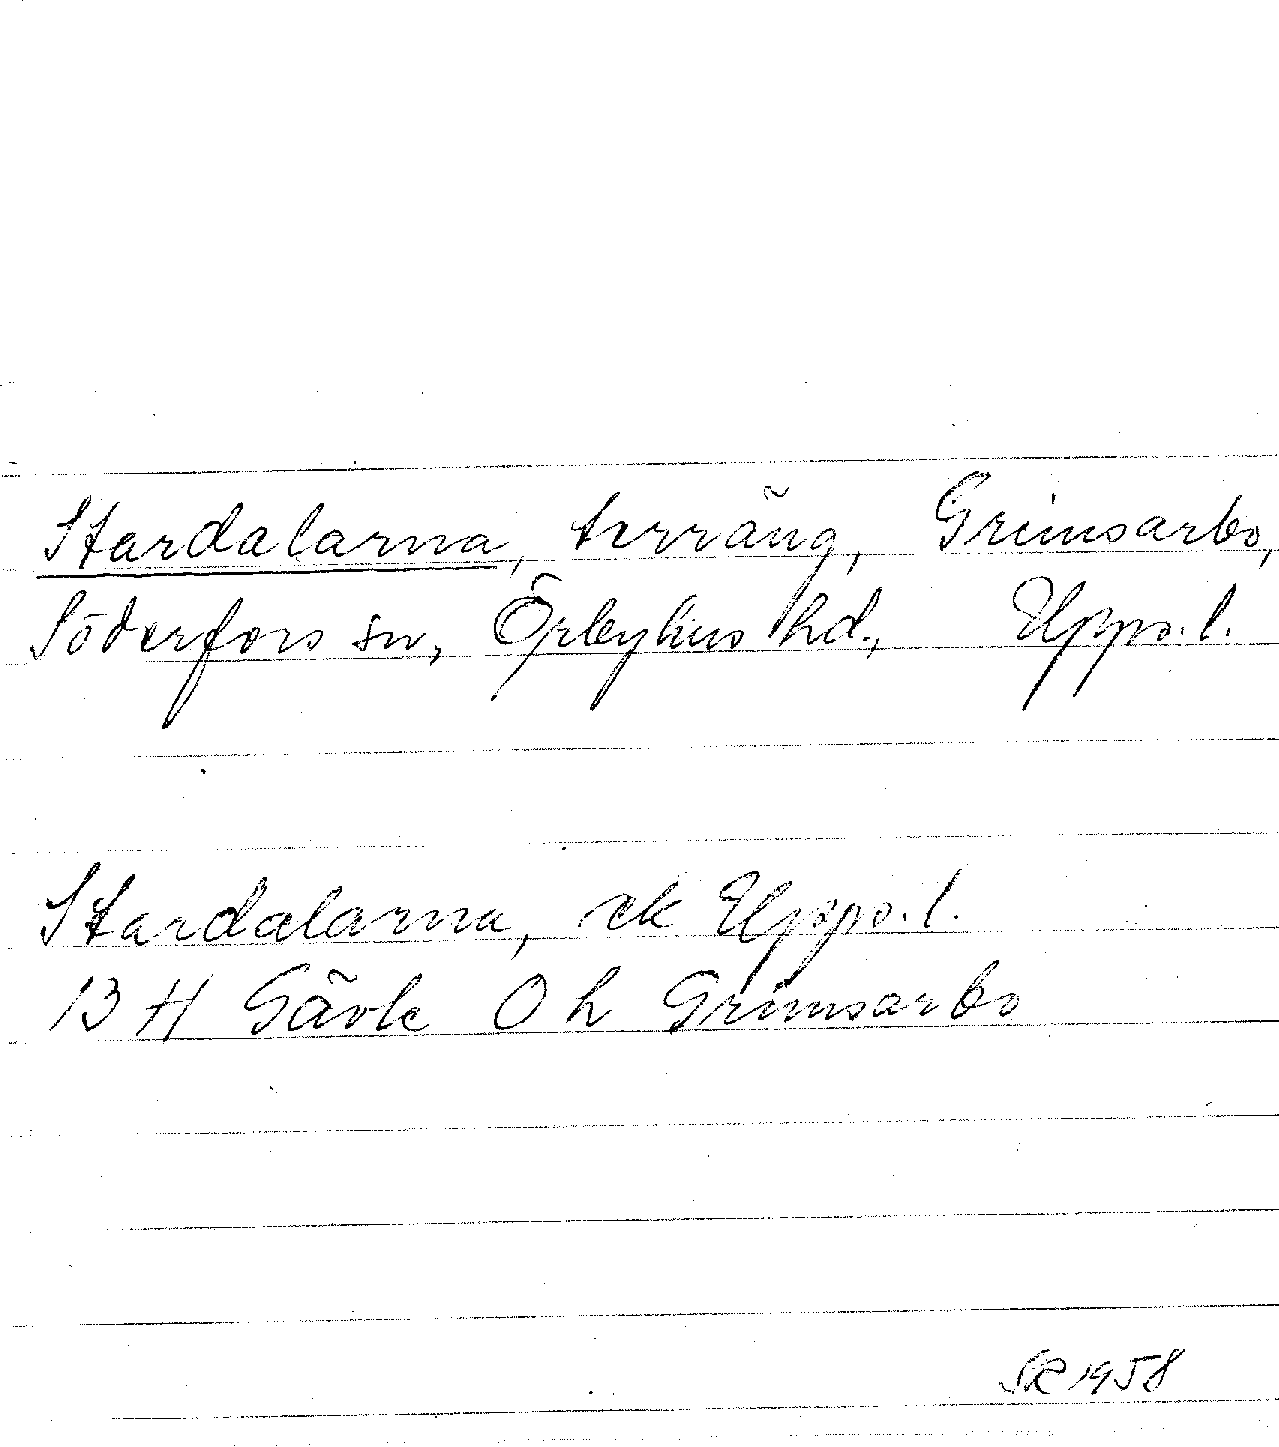 Stardalarna, terräng, Grimsarbo,
Söderfors sn, Örbyhus hd., Upps. l.
Stardalarna, ek Upps. l.
13 H Gävle 0 h Grimsarbo
SR 1958